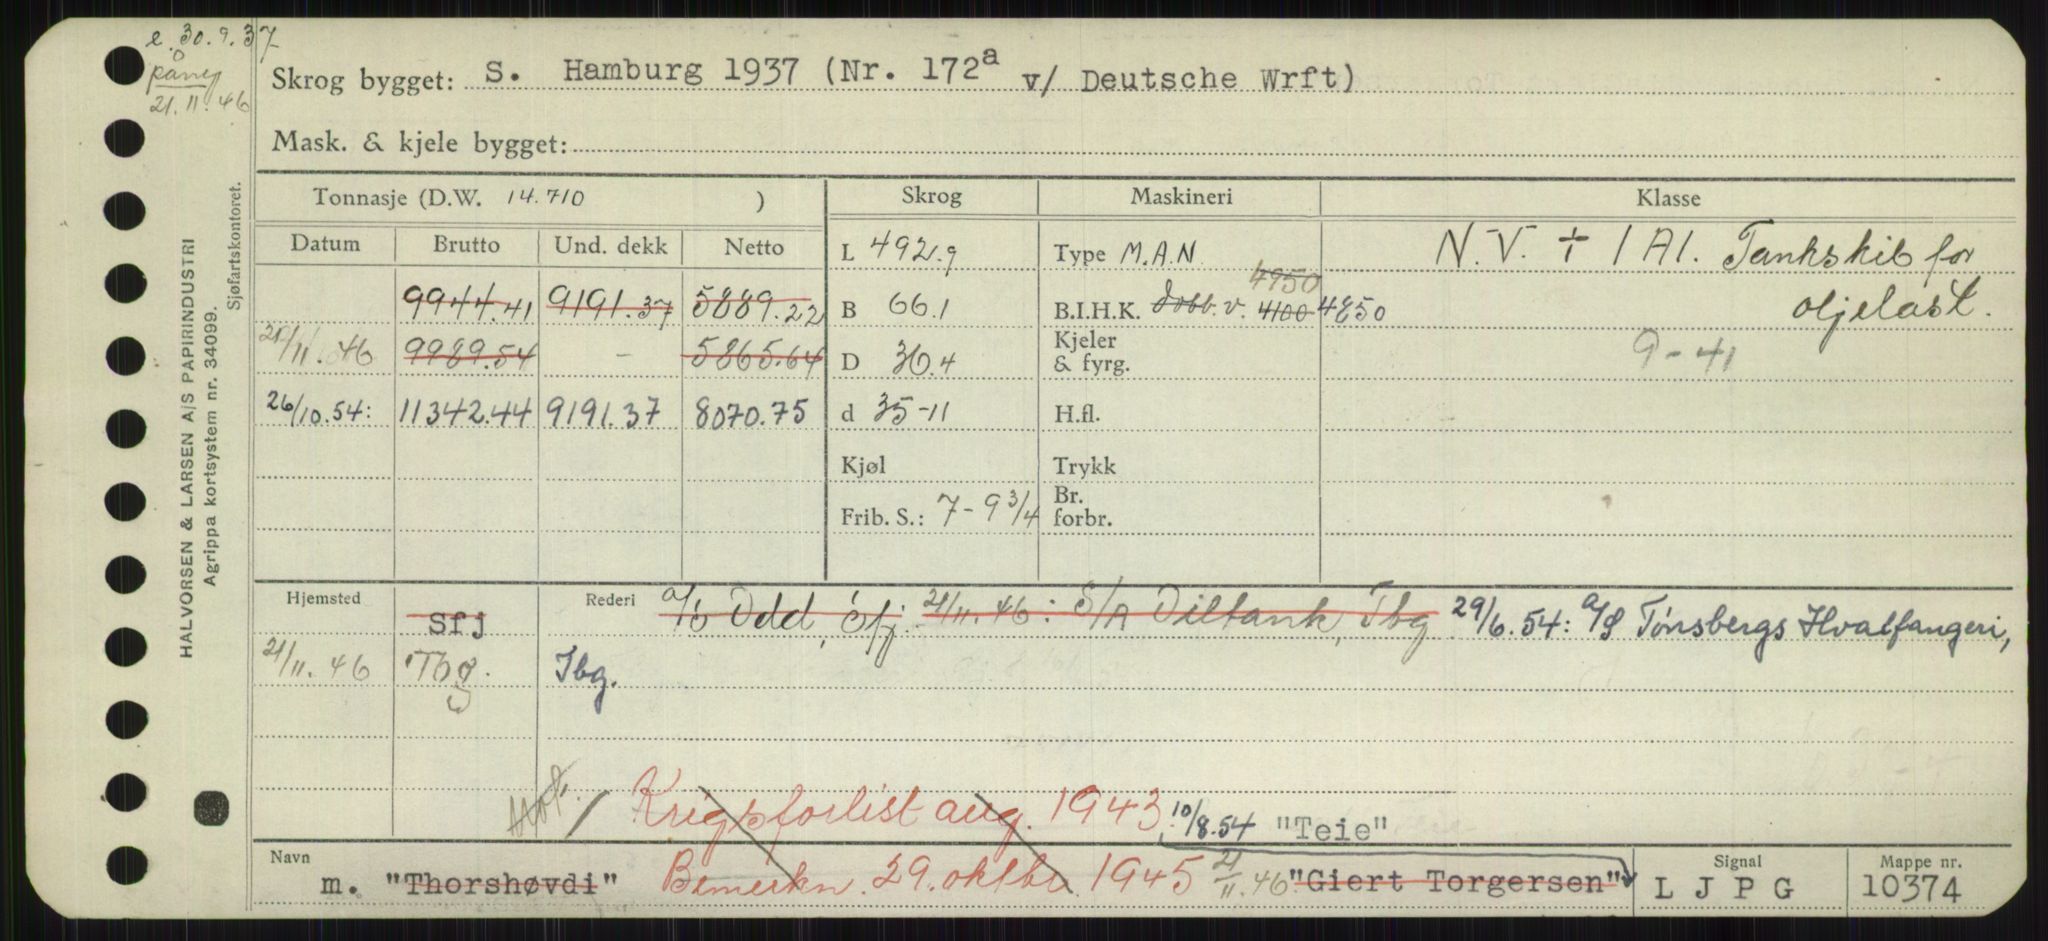 e. 30.9.37
påny
21.11.46
Skrog bygget: S. Hamburg 1937 (Nr. 172a v/ Deutsche Wrft)
Mask. & kjele bygget:
HALVORSEN & LARSEN A/S PAPIRINDUSTRI
Agrippa kortsystem nr. 34099.
Sjøfartskontoret.
Tonnasje (D.W. 14.710 )
Skrog
Maskineri
Klasse
Datum Brutto Und. dekk Netto
9944.41 9191.37 5889.22
21/11.46 9989.54 - 5865.64
26/10.54: 11342.44 9191.37 8070.75
L 492.9
B 66.1
D 36.4
d 35-11
Kjøl
Frib. S.: 7-9 3/4
Type M.A.N.
4950
B.I.H.K. dobb. v. 4100 4850
Kjeler
& fyrg.
H.fl.
Trykk
Br.
forbr.
N.V. + 1 A1. Tankskib for
oljelast.
9-41
Hjemsted Sfj
Rederi a/s Odd, Sfj. 21/11.46: S/A Diltank, Tbg 29/6.54: a/s Tønsbergs Hvalfangeri,
21/11.46 Tbg. Tbg.
Krigsforlist aug. 1943
10/8.54 "Teie"
Navn m. "Thorshøvdi" Bemerkn. 29. oktbr. 1945 21/11.46 "Giert Torgersen"
Signal
L J P G
Mappe nr.
10374